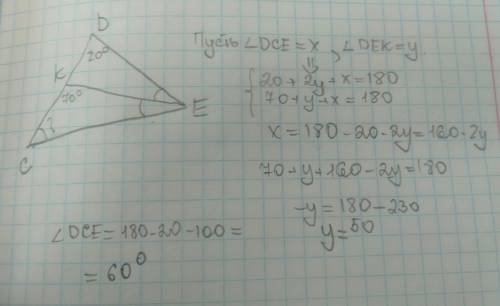 D
20°
K
70°
E
C
?
Пусть ∠DCE = x, ∠DEK = y.
20 + 2y + x = 180
70 + y + x = 180
x = 180 - 20 - 2y = 160 - 2y
70 + y + 160 - 2y = 180
-y = 180 - 230
y = 50
∠DCE = 180 - 20 - 100 =
= 60°